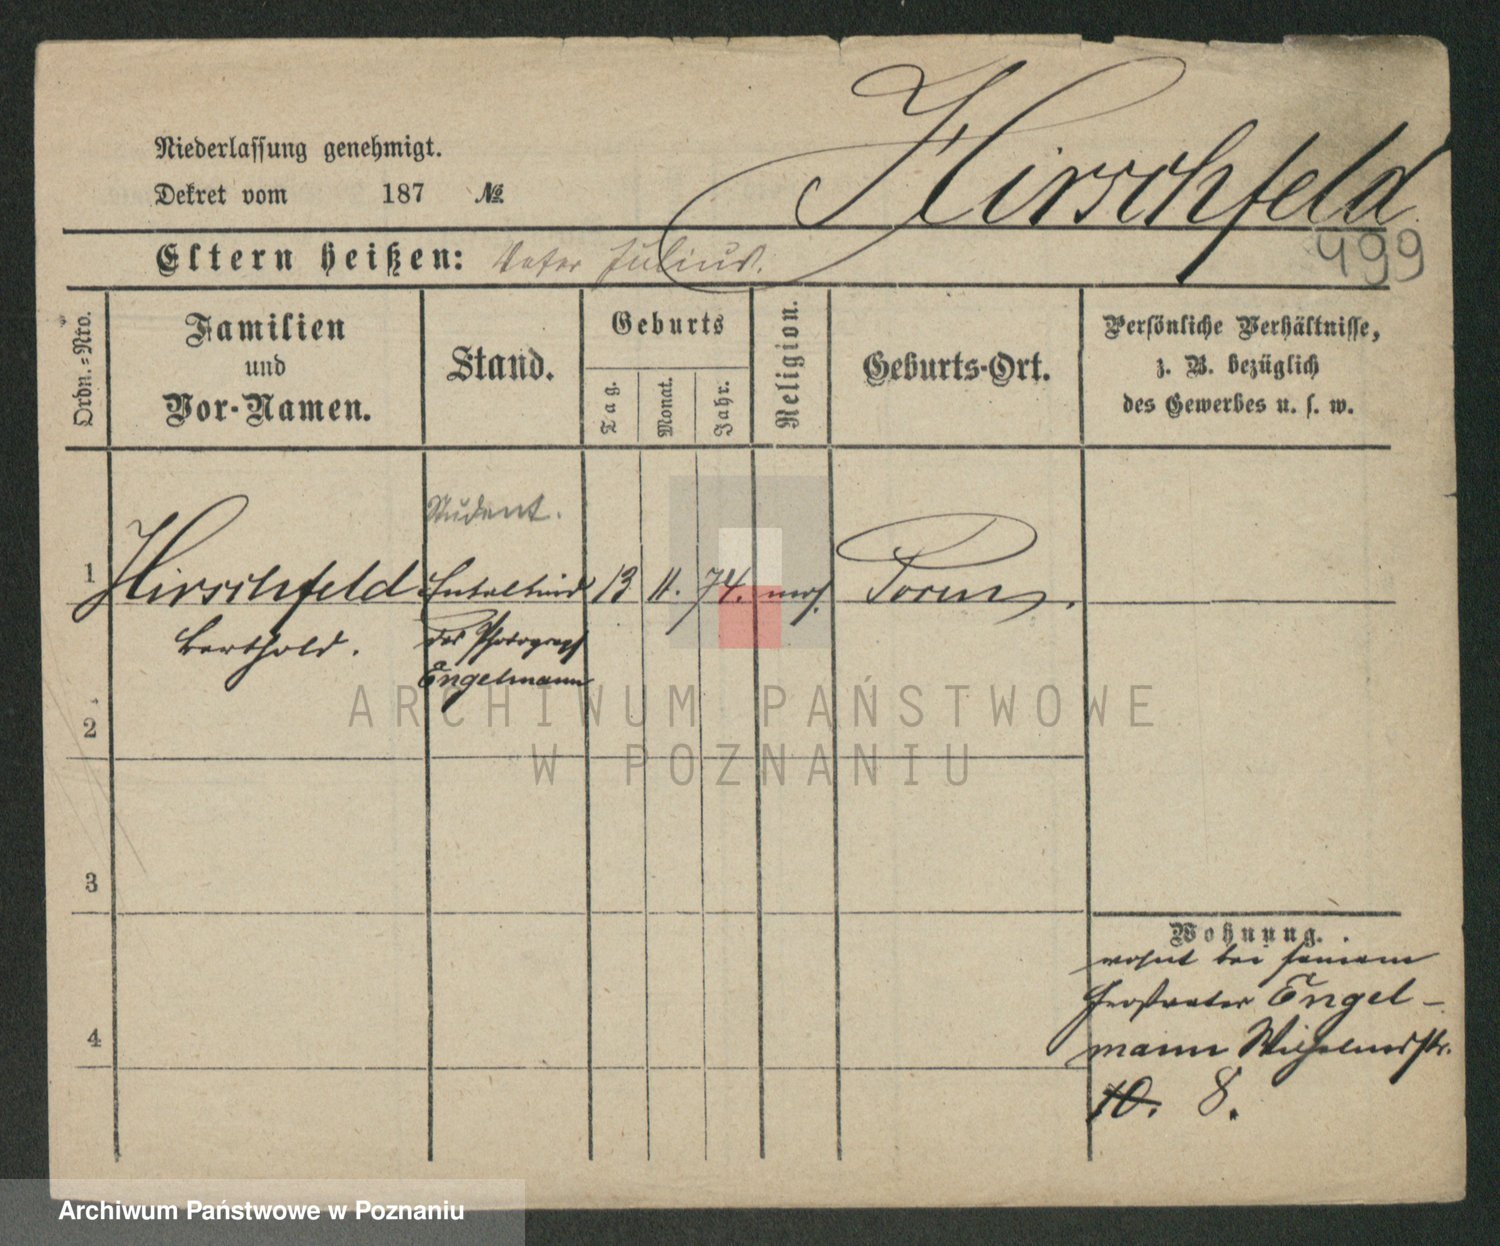 Hirschfeld
Niederlassung genehmigt.
Dekret vom 187 №
499
Eltern heißen: Vater Julius.
Ordn.-Nro.
Familien
und
Vor-Namen.
Stand.
Geburts
Tag.
Monat.
Jahr.
Religion.
Geburts-Ort.
Persönliche Verhältnisse,
z. B. bezüglich
des Gewerbes u. s. w.
Student.
1 Hirschfeld Enkelkind 13 11. 74. mos. Posen.
Berthold.
des Photograph
Engelmann
2
3
4
Wohnung.
wohnt bei seinem
Großvater Engel-
mann Wilhelmstr.
10. 8.
ARCHIWUM PAŃSTWOWE
W POZNANIU
Archiwum Państwowe w Poznaniu